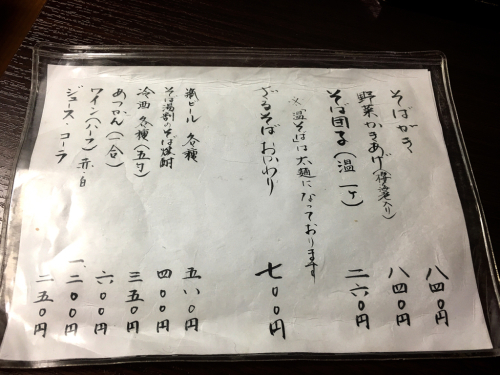 そばがき 八四〇円
野菜かきあげ(桜海老入り) 八四〇円
そば団子(温 一ケ) 二六〇円
※「温そば」は太麺になっております
ざるそばおかわり 七〇〇円
瓶ビール 各種 五八〇円
そば湯割・そば焼酎 四〇〇円
冷酒 各種(五勺) 三五〇円
あつかん(一合) 六〇〇円
ワイン(ハーフ) 赤・白 一、二〇〇円
ジュース コーラ 二五〇円